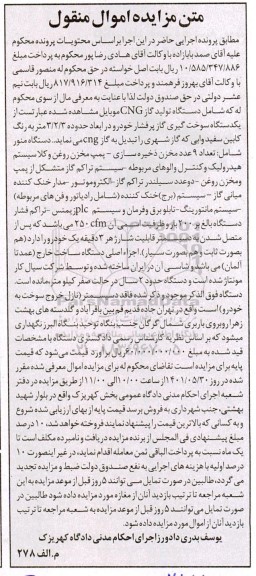 متن مزایده اموال منقول
مطابق پرونده اجرایی حاضر در این اجرا براساس محتویات پرونده محکوم
علیه آقای صمد بابازاده با وکالت آقای هادی رضا پور محکوم به پرداخت مبلغ
۱۰/۵۸۵/۳۴۷/۸۸۶ ریال بابت اصل خواسته در حق محکوم له منصور قاسمی
با وکالت آقای بهروز فرهمند و پرداخت مبلغ ۸۱۷/۹۱۶/۳۱۴ ریال بابت نیم
عشر دولتی در حق صندوق دولت لذا با عنایت به معرفی مال از سوی محکوم
له که شامل دستگاه تولید گاز CNG موبایل مشاهده شده عبارتست از
یکدستگاه سوخت گیری گاز پرفشار خودرو در ابعاد حدوده ۲/۳*۳ متر به رنگ
کابین سفید وآبی که گاز شهری را تبدیل به گاز cng می نماید. دستگاه منور
شامل: تعداد ۹ عدد مخزن ذخیره سازی - پمپ مخزن روغن و کلا سیستم
هیدرولیک و کنترل والوهای مربوطه - سیستم تراکم گاز متشکل از پمپ
ومخزن روغن - دوعدد سیلندر تراکم گاز - الکتروموتور - مدار خنک کننده
میانی گاز - سیستم (برج) خنک کننده (شامل رادیاتور و فن های مربوطه)
-سیستم مانتورینگ - تابلو برق وفرمان و سیستم plc زیمنس - تراکم فشار
دستگاه بالغ بر ۲۰۰ بار و ظرفیت اسمی آن ۲۵۰ cfm می باشد که پس از
متصل شدن به گاز شهری قابلیت شارژ هر ۳ دقیقه یک خودرو را دارد (هم
بصورت ثابت و هم بصورت سیار). اجزاء اصلی دستگاه ساخت خارج (عمدتا
آلمان) می باشد و شاسی آن در ایران ساخته شده و توسط شرکت سیال کار
مونتاژ شده است و دستگاه حدود ۲ سال در حالت صفر کیلومتر بمانده است.
دستگاه فوق الذکر موجود و دک شده فاقد دیسپنسر (نازل خروج سوخت به
خودرو) است و واقع در تهران جاده قدیم قم بین باقر آباد و گلدسته های بهشت
زهرا روبروی باربری شمال گرگان جنب بنگاه توحید بنگاه البرز نگهداری
میشود که بر اساس نظریه کارشناس رسمی دادگستری دستگاه با مشخصات
قید شده به مبلغ ۶۰/۰۰۰/۰۰۰/۰۰۰ ریال برآورد قیمت می شود که قیمت
پایه برای مزایده است تقاضای محکوم له برای مزایده اموال معرفی شده مقرر
شده در روز ۱۴۰۱/۰۵/۳۰ از ساعت ۱۰/۰۰ الی ۱۱/۰۰ از طریق مزایده در دفتر
شعبه اجرای احکام مدنی دادگاه عمومی بخش کهریزک واقع در بلوار شهید
بهشتی، جنب شهرداری به فروش برسد قیمت پایه از بهای ارزیابی شده شروع
و به کسانی که بالاترین قیمت را پیشنهاد نمایند فروخته خواهد شد، ۱۰ درصد
مبلغ پیشنهادی فی المجلس از برنده مزایده دریافت و نامبرده مکلف است تا
یک ماه نسبت به پرداخت الباقی ثمن معامله اقدام نماید، در غیر اینصورت ۱۰
درصد اولیه با هزینه های اجرایی به نفع صندوق دولت ضبط و مزایده تجدید
می گردد، طالبین در صورت تمایل می توانند ۵ روز قبل از موعد مزایده به این
شعبه مراجعه تا ترتیب بازدید آنان از مغازه مورد مزایده داده شود طالبین در
صورت تمایل می توانند ۵ روز قبل از موعد مزایده به شعبه مراجعه تا ترتیب
بازدید آنان از اموال مورد مزایده داده شود.
یوسف بدری دادورز اجرای احکام مدنی دادگاه کهریزک
م.الف ۲۷۸